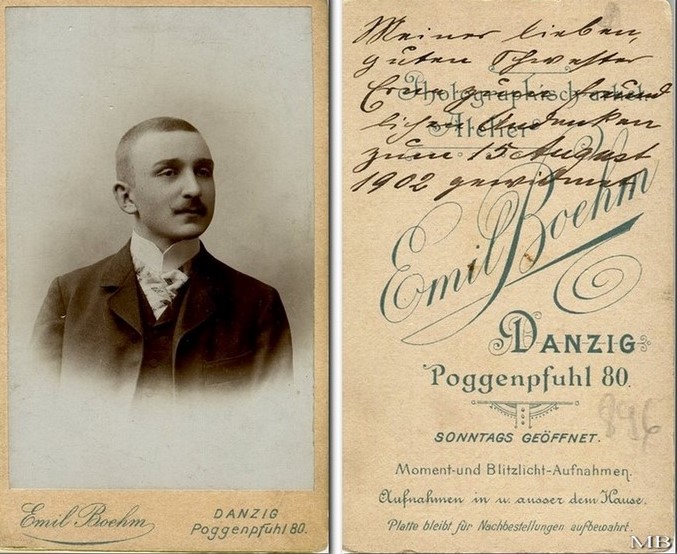 Emil Boehm
DANZIG
Poggenpfuhl 80.
Meiner lieben,
guten Schwester
Erna zum freund
lichen Andenken
zum 15 August
1902 gewidmet
Photographisch-artist.
Atelier
Emil Boehm
DANZIG
Poggenpfuhl 80.
SONNTAGS GEÖFFNET.
Moment-und Blitzlicht-Aufnahmen.
Aufnahmen in u. ausser dem Hause.
Platte bleibt für Nachbestellungen aufbewahrt.
896
MB